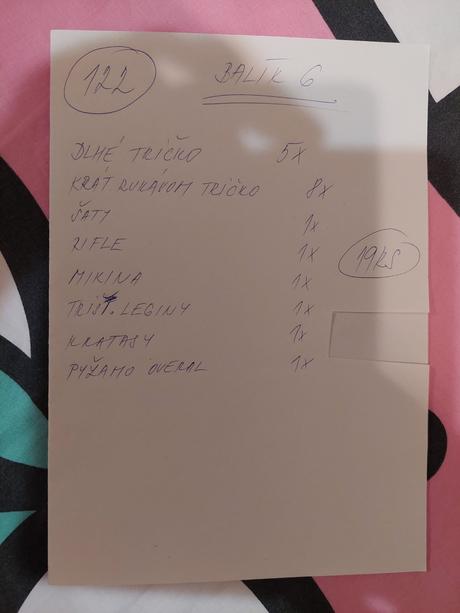 122 BALÍK 6
DLHÉ TRIČKO 5X
KRÁT RUKÁVOM TRIČKO 8x
ŠATY 1x
RIFLE 1x
19KS
MIKINA 1x
TRIŠT. LEGINY 1x
KRATASY 1x
PYŽAMO OVERAL 1x